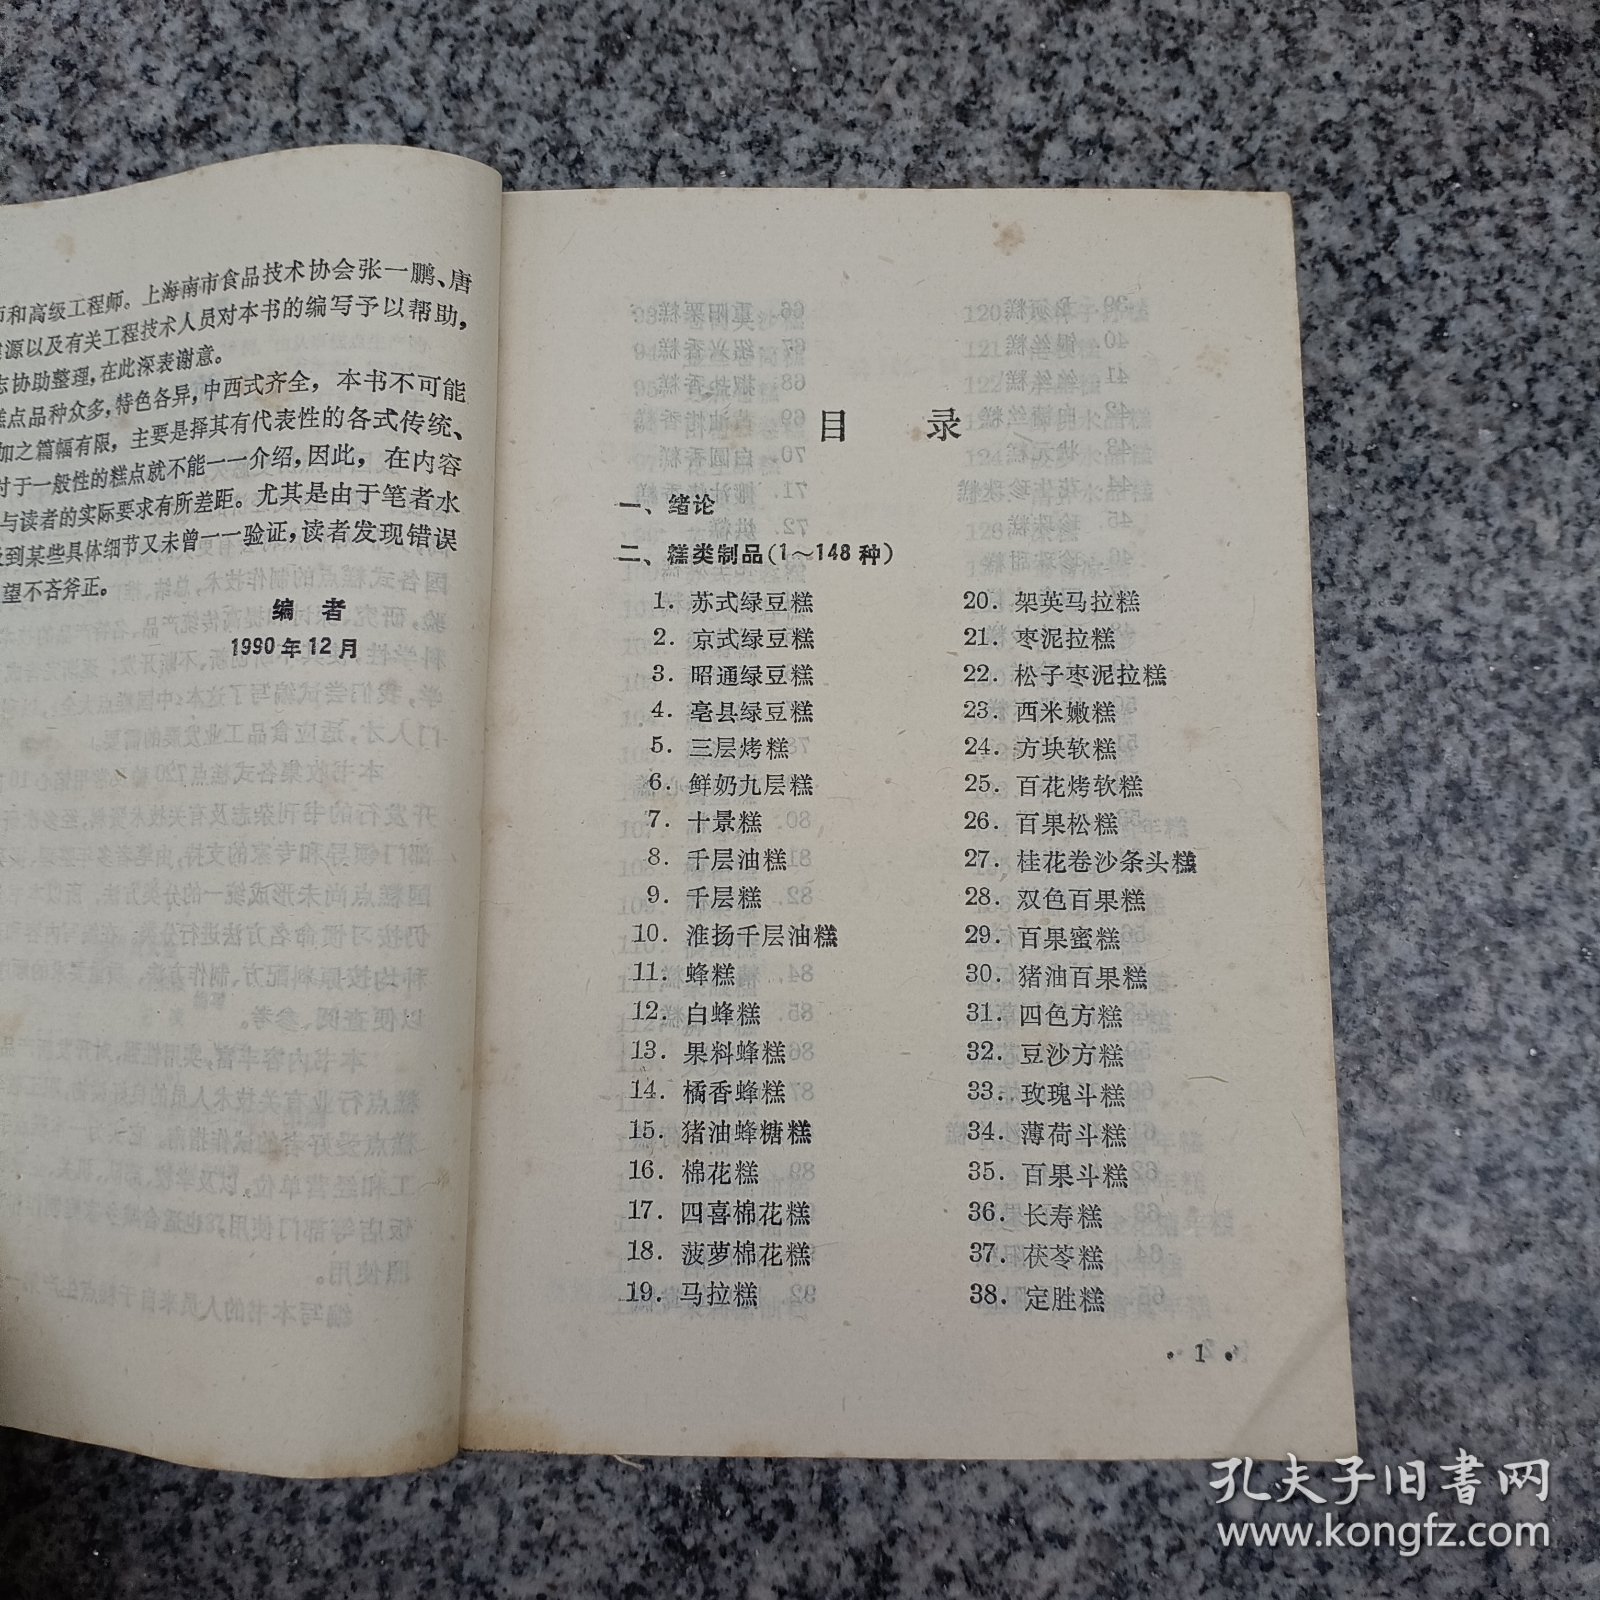 和高级工程师。上海南市食品技术协会张一鹏、唐
源以及有关工程技术人员对本书的编写予以帮助，
志协助整理，在此深表谢意。
点品种众多，特色各异，中西式齐全，本书不可能
加之篇幅有限，主要是择其有代表性的各式传统、
对于一般性的糕点就不能一一介绍，因此，在内容
与读者的实际要求有所差距。尤其是由于笔者水
到某些具体细节又未曾一一验证，读者发现错误
望不吝斧正。
编者
1990年12月
目 录
一、绪论
二、糕类制品（1～148种）
1. 苏式绿豆糕
2. 京式绿豆糕
3. 昭通绿豆糕
4. 亳县绿豆糕
5. 三层烤糕
6. 鲜奶九层糕
7. 十景糕
8. 千层油糕
9. 千层糕
10. 淮扬千层油糕
11. 蜂糕
12. 白蜂糕
13. 果料蜂糕
14. 橘香蜂糕
15. 猪油蜂糖糕
16. 棉花糕
17. 四喜棉花糕
18. 菠萝棉花糕
19. 马拉糕
20. 架英马拉糕
21. 枣泥拉糕
22. 松子枣泥拉糕
23. 西米嫩糕
24. 方块软糕
25. 百花烤软糕
26. 百果松糕
27. 桂花卷沙条头糕
28. 双色百果糕
29. 百果蜜糕
30. 猪油百果糕
31. 四色方糕
32. 豆沙方糕
33. 玫瑰斗糕
34. 薄荷斗糕
35. 百果斗糕
36. 长寿糕
37. 茯苓糕
38. 定胜糕
· 1 ·
孔夫子旧书网
www.kongfz.com